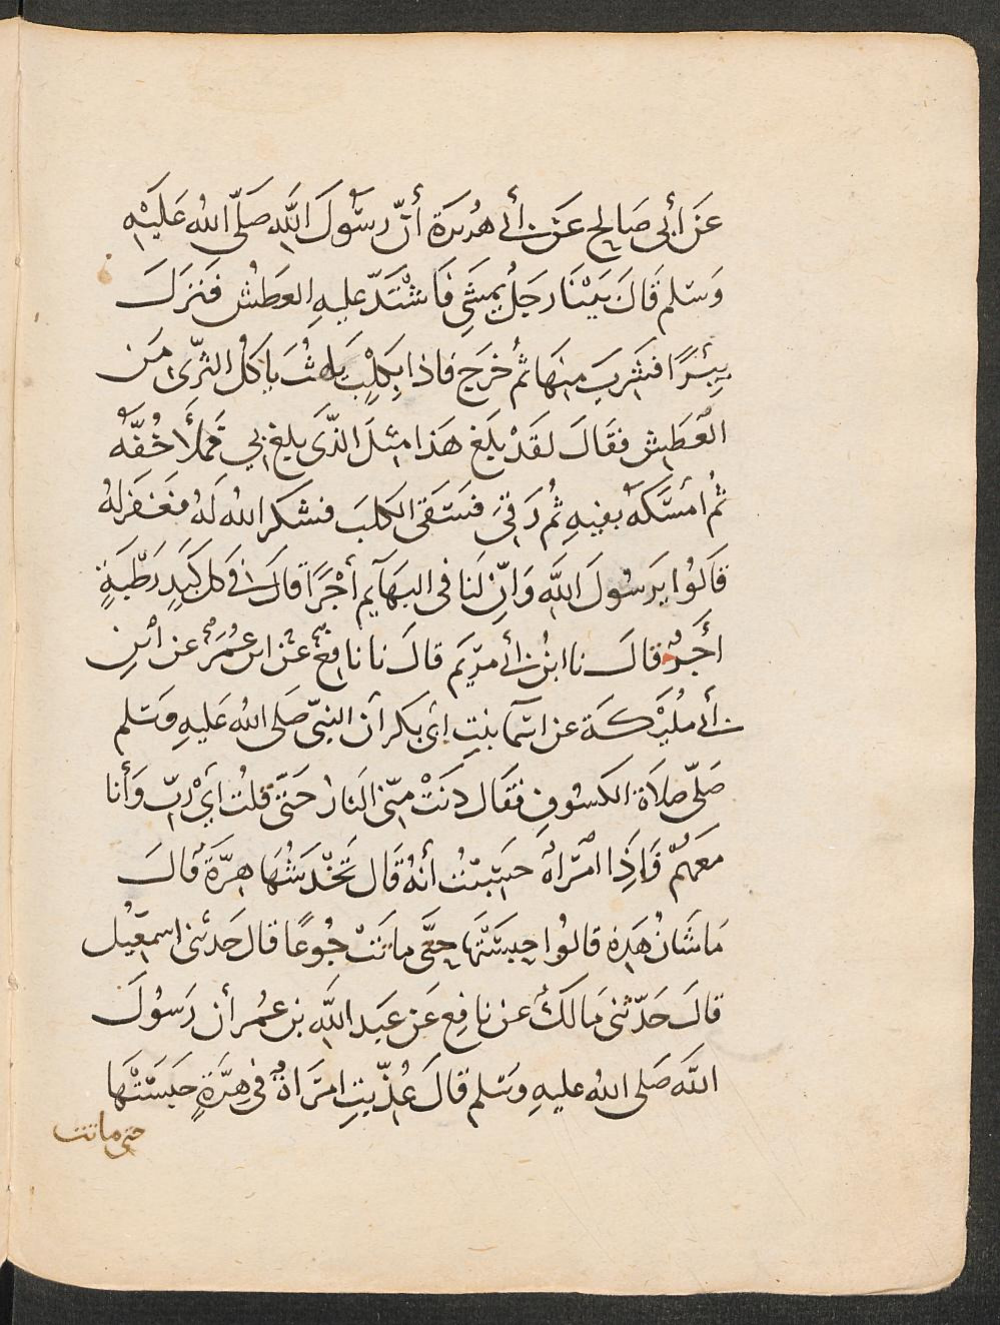 عَن أبي صَالِحٍ عَن أبي هُرَيرَة أنّ رسُولَ اللَّهِ صَلّى اللهُ عَلَيْهِ
وَسَلم قَالَ بَيْنَا رجلٌ يمشِي فَاشْتَدّ عليهِ العَطشُ فَنزَلَ
بِئرًا فشربَ منهَا ثُم خرَج فاذا بِكَلْبٍ يَلهثُ يَاكلُ الثرّى مِن
العَطَشِ فقَالَ لقَدْ بَلَغ هَذا مثلَ الذّى بلغ بي فَملأَ خُفَّهُ
ثُم أمسَكَهُ بفيهِ ثُم رَقِيَ فسَقَى الكلبَ فشكر اللهُ لَهُ فغَفَر لهُ
قَالُوا يَرسُولَ اللَّهِ وَانّ لَنا فى البهَآيم أجْرًا قالَ فى كل كَبِدٍ رَطْبَةٍ
أجْرٌ قالَ نا ابنُ أبي مرْيَم قالَ نا نافِعُ عَن ابن عُمَرَ عن ابْنِ
أبي مُلَيْكَة عَن اسْمآ بنتِ ابى بَكر أن النبىّ صَلى الله عَليهِ وَسَلم
صَلّى صلاَة الكسُوفِ فقَال دنَتْ منّى النارُ حَتّى قلتُ أيْ ربّ وَأنا
مَعَهُمْ فَاذِا امرَأةٌ حسِبْتُ أنهُ قَال تَخدّشُهَا هِرّةٌ قالَ
مَا شَانُ هَذِهِ قالُوا حبسَتْهَا حتّى ماتَتْ جُوعًا قال حَدثنى اسمعِيلُ
قالَ حَدّثنى مَالكٌ عن نافِعٍ عَن عَبد اللَّهِ بن عمُر أن رَسُولَ
اللَّه صَلى اللهُ عليهِ وسَلم قالَ عُذّبتِ امرَاةٌ فى هِرّةٍ حَبَستْهَا
حتى ماتت